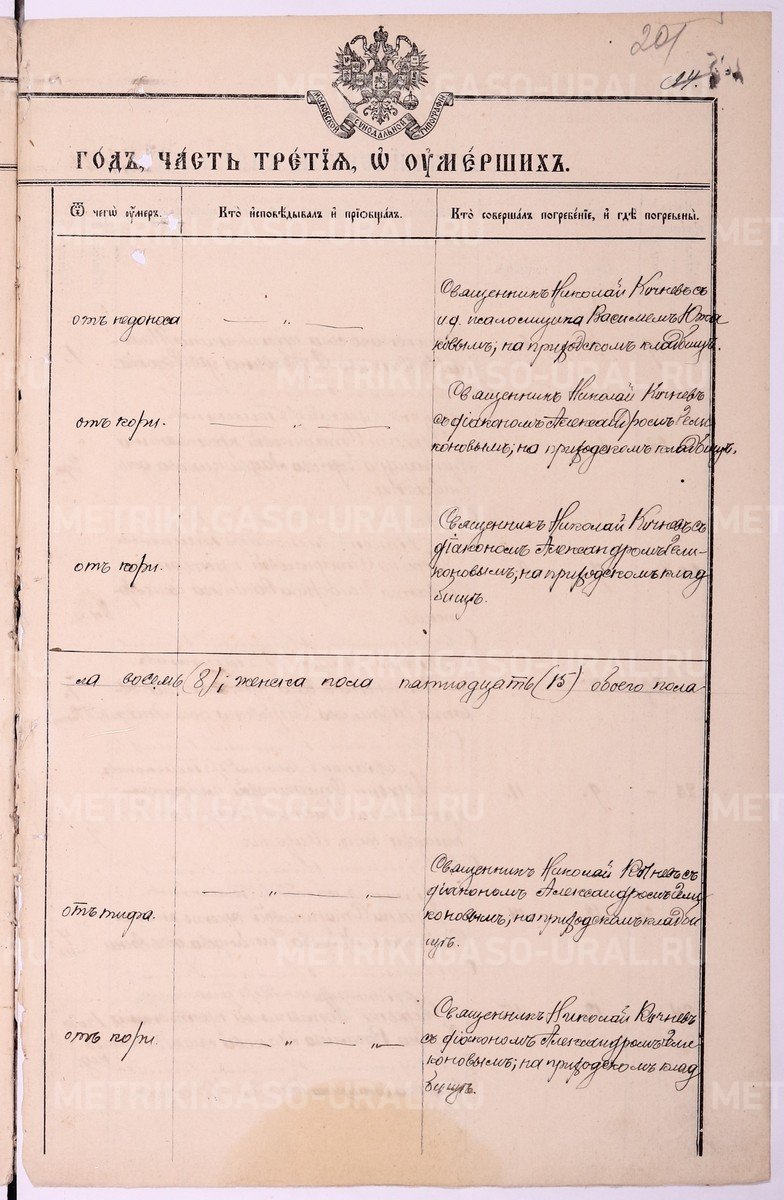 201
МОСКОВСКОЙ СѴНОДАЛЬНОЙ ТИПОГРАФІИ
ГОДЪ, ЧАСТЬ ТРЕТІЯ, Ѿ ОУМЕРШИХЪ.
Ѿ чегѡ оумеръ.
Кто исповѣдывалъ и пріобщалъ.
Кто совершалъ погребеніе, и гдѣ погребены.
отъ недоноса
— „ —
Священникъ Николай Кочневъ съ
и д. псаломщика Василіемъ Юта
ковымъ; на приходскомъ кладбищѣ.
отъ кори.
— „ —
Священникъ Николай Кочневъ
съ діакономъ Александромъ Гели
коновымъ; на приходскомъ кладбищѣ.
отъ кори.
Священникъ Николай Кочневъ съ
діакономъ Александромъ Гели-
коновымъ; на приходскомъ клад
бищѣ.
ла восемь (8); женска пола пятнадцать (15) обоего пола
отъ тифа.
— „ — „ —
Священникъ Николай Кочневъ съ
діакономъ Александромъ Гели
коновымъ; на приходскомъ кладби
щѣ.
отъ кори.
— „ — „ —
Священникъ Николай Кочневъ
съ діакономъ Александромъ Гели
коновымъ; на приходскомъ клад
бищѣ.
METRIKI.GASO-URAL.RU